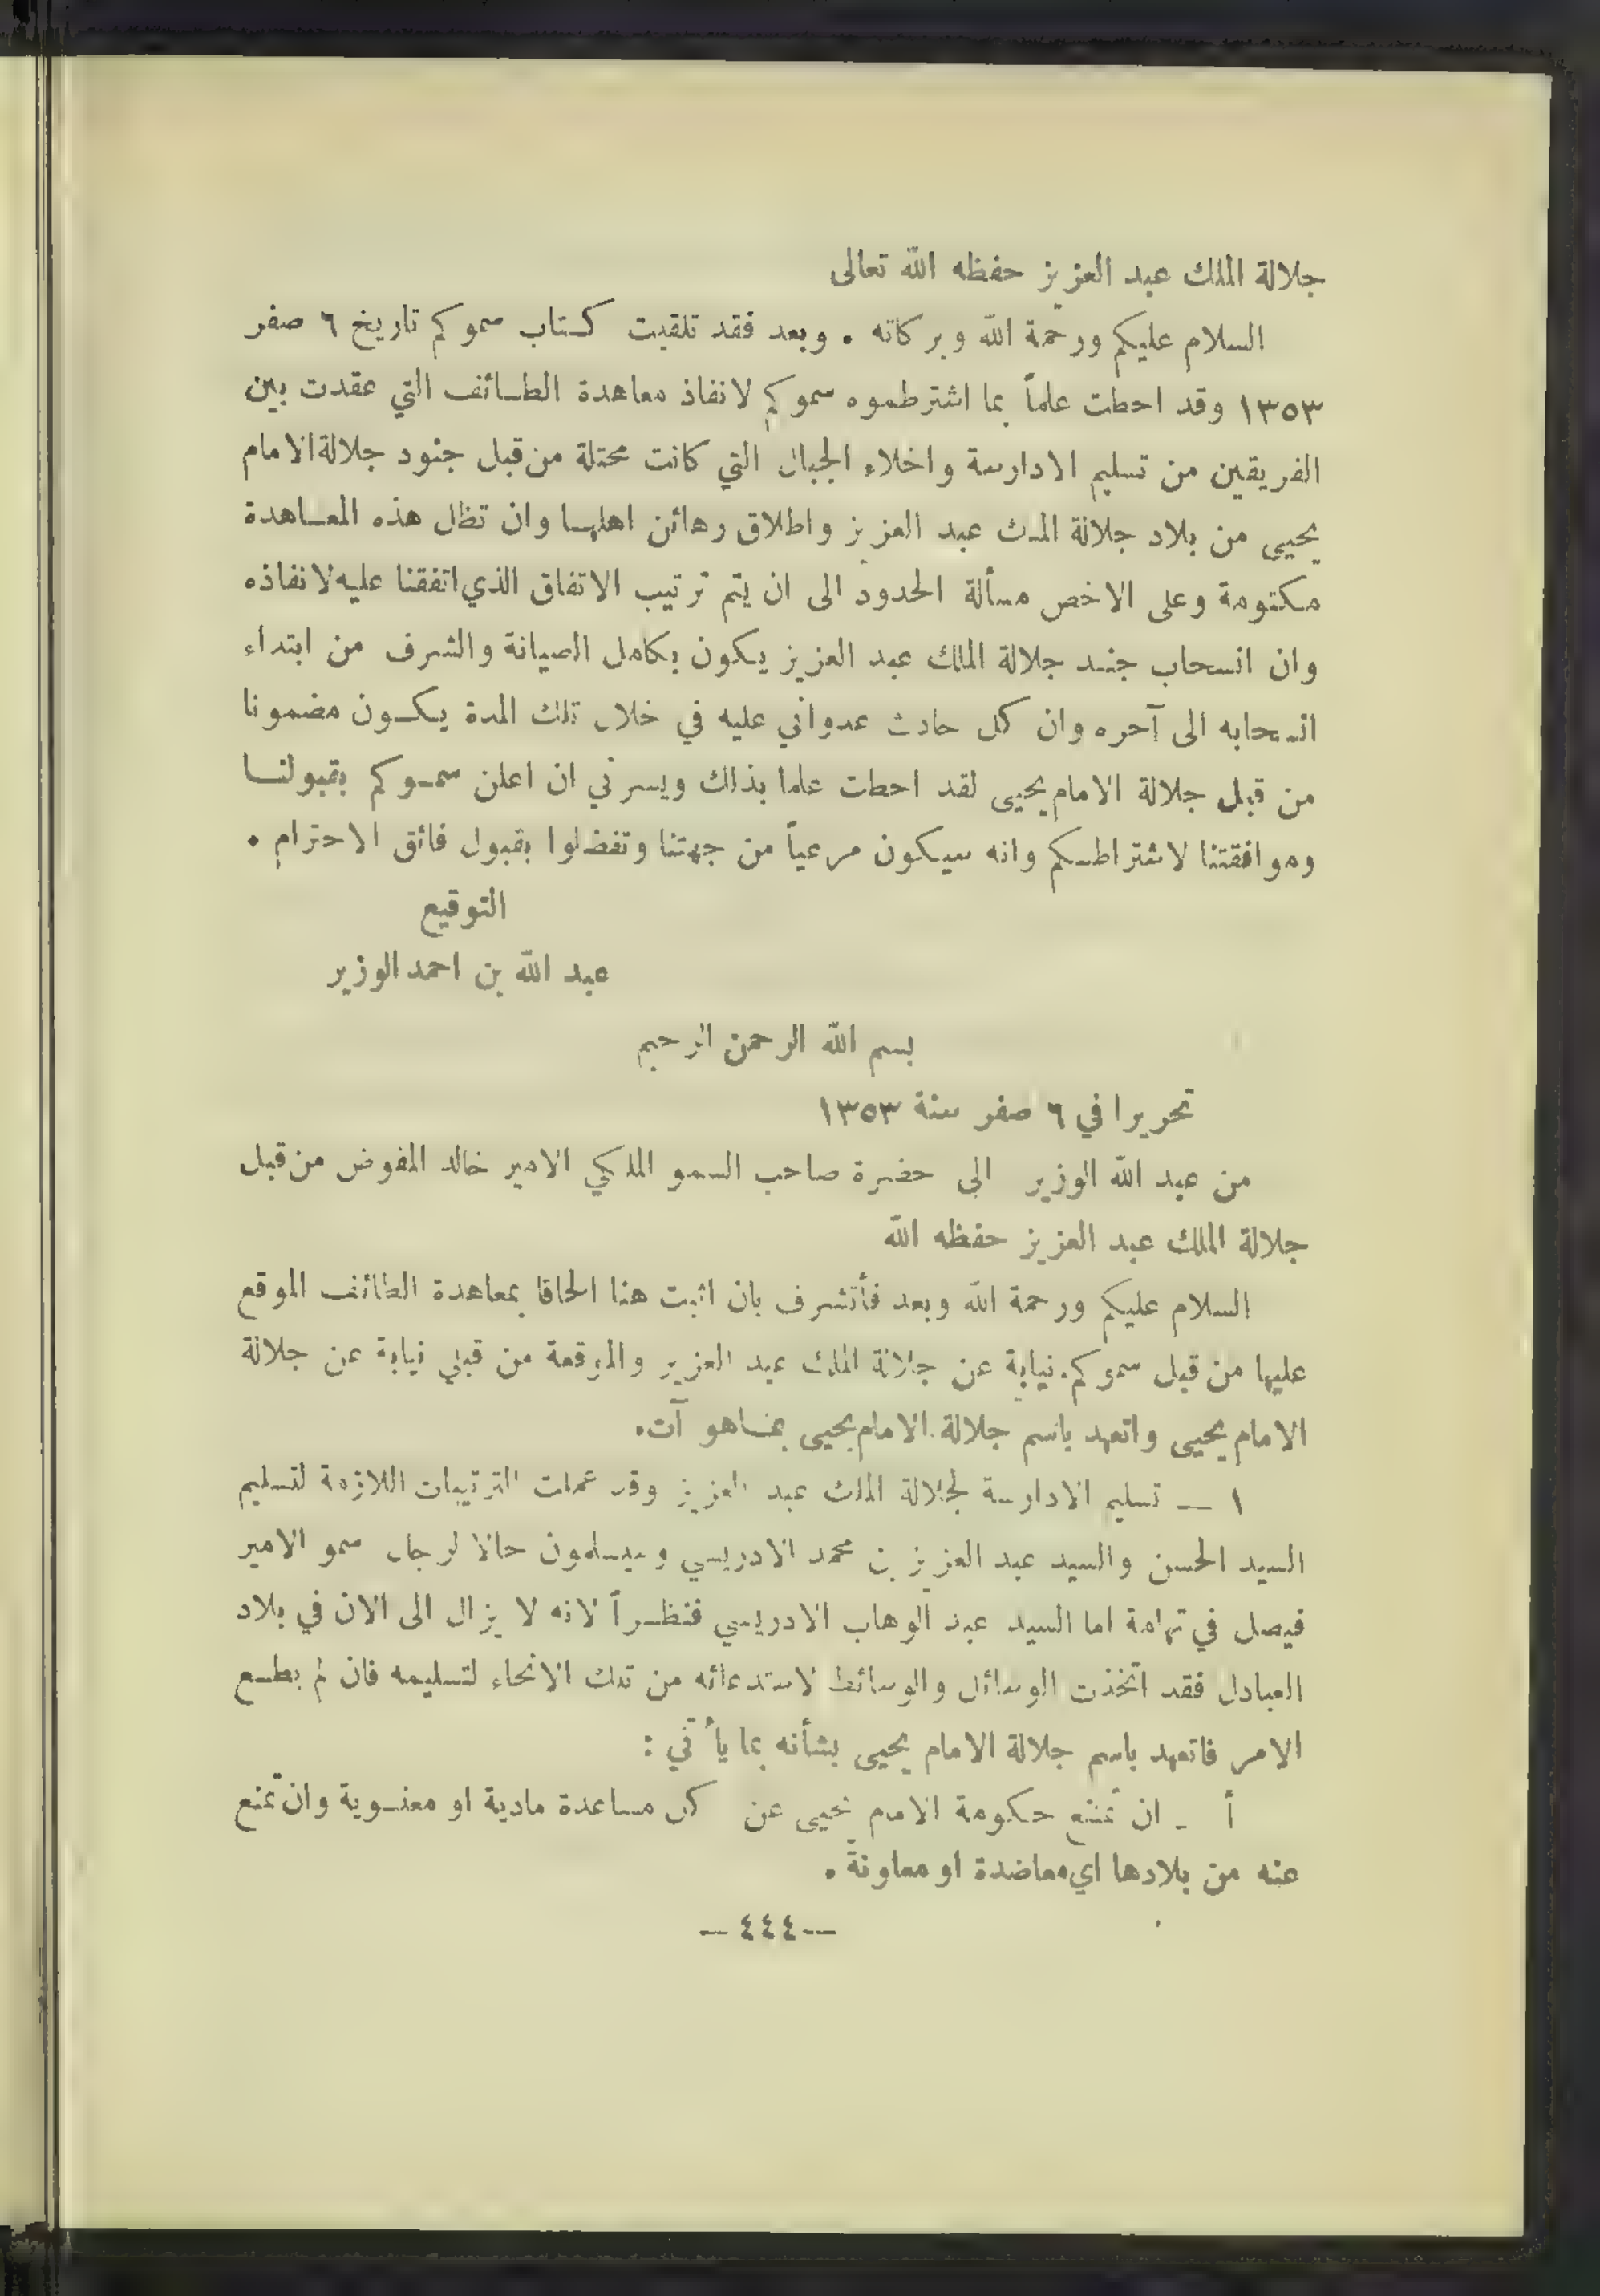 جلالة الملك عبد العزيز حفظه الله تعالى
السلام عليكم ورحمة الله وبركاته . وبعد فقد تلقيت كتاب سموكم تاريخ ٦ صفر
١٣٥٣ وقد احطت علماً بما اشترطموه سموكم لانفاذ معاهدة الطائف التي عقدت بين
الفريقين من تسليم الادارسة واخلاء الجبال التي كانت محتلة من قبل جنود جلالة الامام
يحيى من بلاد جلالة الملك عبد العزيز واطلاق رهائن اهلها وان تظل هذه المعاهدة
مكتومة وعلى الاخص مسألة الحدود الى ان يتم ترتيب الاتفاق الذي اتفقنا عليه لانفاذه
وان انسحاب جند جلالة الملك عبد العزيز يكون بكامل الصيانة والشرف من ابتداء
انسحابه الى آخره وان كل حادث عدواني عليه في خلال تلك المدة يكون مضمونا
من قبل جلالة الامام يحيى لقد احطت علما بذلك ويسرني ان اعلن سموكم بقبولنا
وموافقتنا لاشتراطكم وانه سيكون مرعياً من جهتنا وتفضلوا بقبول فائق الاحترام .
التوقيع
عبد الله بن احمد الوزير
بسم الله الرحمن الرحيم
تحريرا في ٦ صفر سنة ١٣٥٣
من عبد الله الوزير الى حضرة صاحب السمو الملكي الامير خالد المفوض من قبل
جلالة الملك عبد العزيز حفظه الله
السلام عليكم ورحمة الله وبعد فأتشرف بان اثبت هنا الحاقا بمعاهدة الطائف الموقع
عليها من قبل سموكم نيابة عن جلالة الملك عبد العزيز والموقعة من قبلي نيابة عن جلالة
الامام يحيى واتعهد باسم جلالة الامام يحيى بما هو آت.
١ — تسليم الادارسة لجلالة الملك عبد العزيز وقد عملت الترتيبات اللازمة لتسليم
السيد الحسن والسيد عبد العزيز بن محمد الادريسي وسيسلمون حالا لرجال سمو الامير
فيصل في تهامة اما السيد عبد الوهاب الادريسي فنظراً لانه لا يزال الى الان في بلاد
العبادل فقد اتخذت الوسائل والوسائط لاستدعائه من تلك الانحاء لتسليمه فان لم يطع
الامر فاتعهد باسم جلالة الامام يحيى بشأنه بما يأتي :
أ - ان تمتنع حكومة الامام يحيى عن كل مساعدة مادية او معنوية وان تمنع
عنه من بلادها اي معاضدة او معاونة .
— ٤٤٤ —